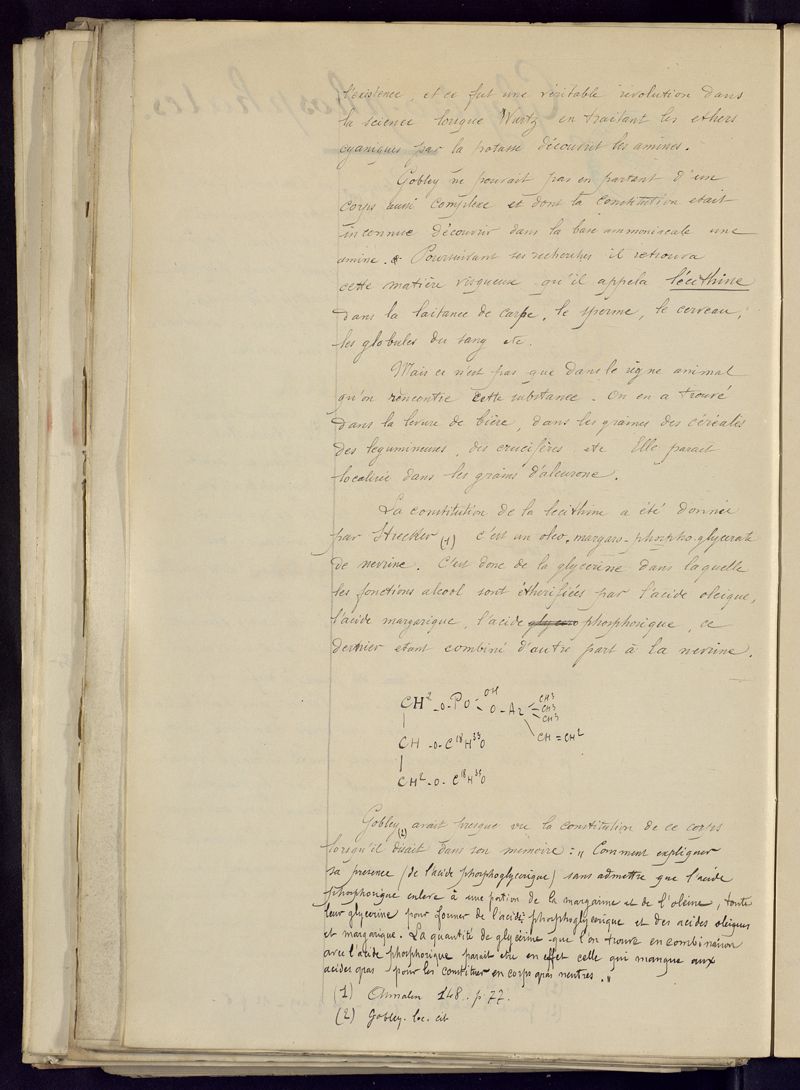 l'existence, et ce fut une véritable révolution dans
la science lorsque Wurtz en traitant les ethers
cyaniques par la potasse découvrit les amines.
Gobley ne pouvait pas en partant d'un
corps aussi complexe et dont la constitution etait
inconnue découvrir dans la base ammoniacale une
amine. Poursuivant ses recherches il retrouva
cette matière visqueuse qu'il appela lécithine
dans la laitance de carpe, le sperme, le cerveau,
les globules du sang etc.
Mais ce n'est pas que dans le règne animal
qu'on rencontre cette substance. On en a trouvé
dans la levure de bière, dans les graines des céréales
des legumineuses, des crucifères, etc Elle parait
localisée dans les grains d'aleurone.
La constitution de la lecithine a été donnée
par Strecker (1) c'est un oleo-margaro-phospho-glycerate
de nevrine. C'est donc de la glycerine dans laquelle
les fonctions alcool sont étherifiées par l'acide oleique,
l'acide margarique, l'acide glycero phosphorique, ce
dernier etant combiné d'autre part à la nevrine.
CH² -O- PO - OH
O - Az CH³
CH³
CH³
CH = CH²
CH -O- C¹⁸H³³O
CH² -O- C¹⁸H³⁵O
Gobley (2) avait presque vu la constitution de ce corps
lorsqu'il disait dans son memoire : „ Comment expliquer
sa presence (de l'acide phosphoglycerique) sans admettre que l'acide
phosphorique enleve à une portion de la margarine et de l'oleine, toute
leur glycerine pour former de l'acide phosphoglycerique et des acides oleiques
et margarique. La quantité de glycerine que l'on trouve en combinaison
avec l'acide phosphorique parait etre en effet celle qui manque aux
acides gras pour les constituer en corps gras neutres. „
(1) Annalen 148. p 77.
(2) Gobley. loc. cit